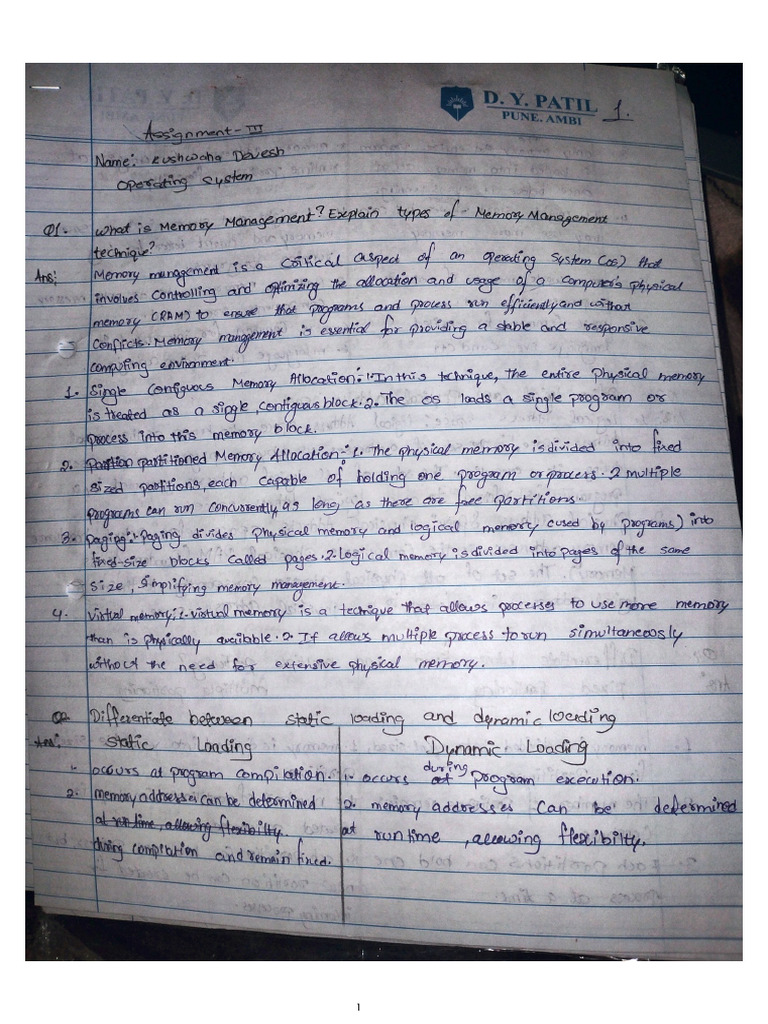 D. Y. PATIL
PUNE, AMBI
1.
Assignment - III
Name: Kushwaha Devesh
Operating System
Q1. What is Memory Management? Explain types of Memory Management
technique?
Ans: Memory management is a critical aspect of an operating System (OS) that
involves controlling and optimizing the allocation and usage of a computer's physical
memory (RAM) to ensure that programs and process run efficiently and without
conflicts. Memory management is essential for providing a stable and responsive
computing environment.
1. Single Contiguous Memory Allocation: 1. In this technique, the entire physical memory
is treated as a single, contiguous block. 2. The OS loads a single program or
process into this memory block.
2. Partion partitioned Memory Allocation:- 1. The physical memory is divided into fixed
sized partitions, each capable of holding one program or process. 2 multiple
programs can run concurrently as long as there are free partitions.
3. Paging:- Paging divides physical memory and logical memory (used by programs) into
fixed-size blocks called pages. 2. Logical memory is divided into pages of the same
size, simplifying memory management.
4. Virtual memory: 1. virtual memory is a technique that allows processes to use more memory
than is physically available. 2. It allows multiple process to run simultaneously
without the need for extensive physical memory.
Q2 Differentiate between static loading and dynamic loading
Ans: Static Loading
1. occurs at program compilation.
2. memory addresses can be determined
at run time, allowing flexibilty.
during compilation and remain fixed.
Dynamic Loading
1. occurs at during program execution.
2. memory addresses can be determined
at runtime, allowing flexibilty.
1